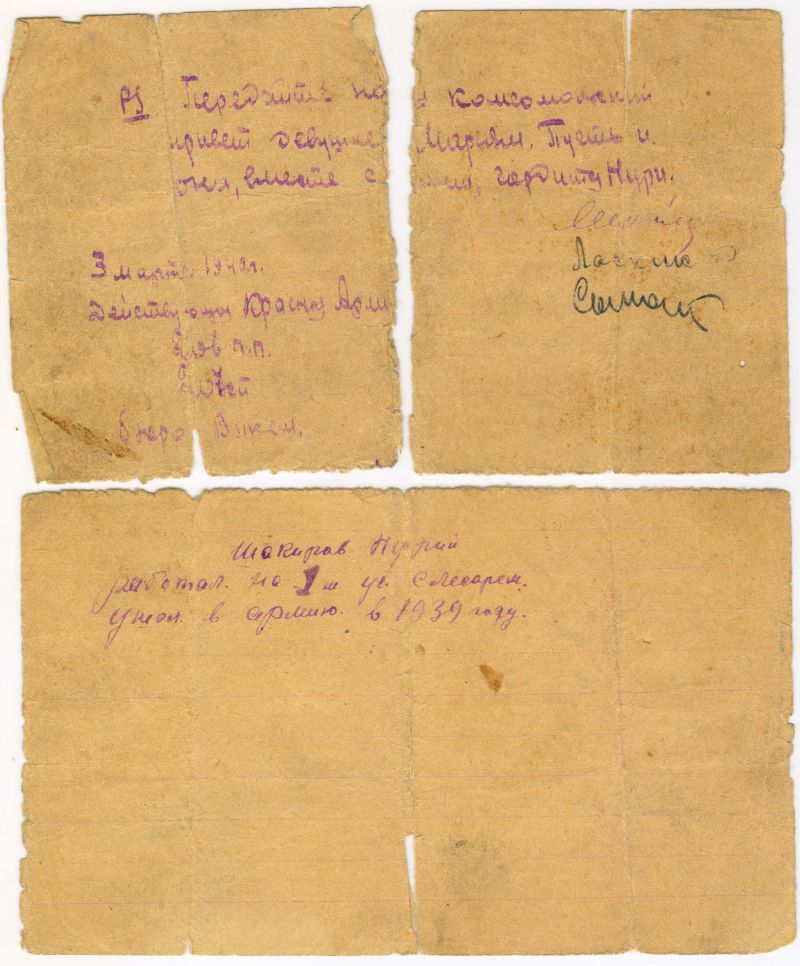 PS. Передайте на комсомольский
привет девушке Марьям. Пусть и
она, вместе с гордится Нури.
3 марта 1942г.
Действующая Красная Арми
п.п.
бюро
Шакиров Нурий
работал. на 1м уч. слесарем.
ушол. в армию. в 1939 году.